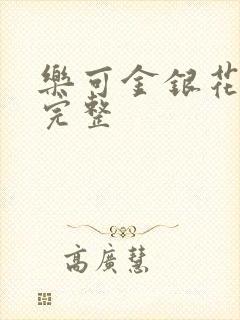 樂可金銀花
完整
高廣慧